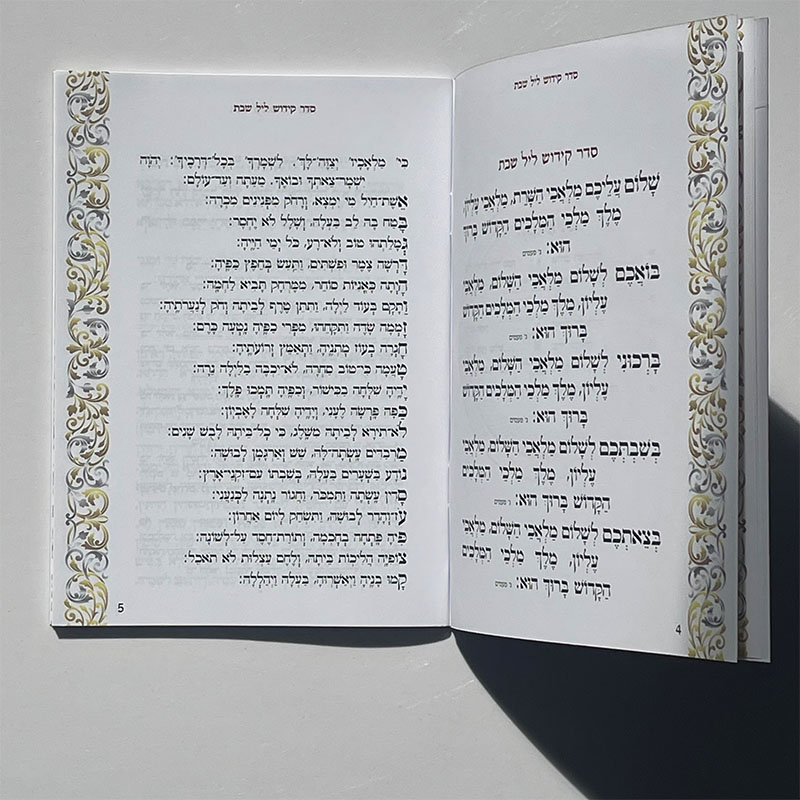 סדר קידוש ליל שבת
סדר קידוש ליל שבת
שָׁלוֹם עֲלֵיכֶם מַלְאֲכֵי הַשָּׁרֵת, מַלְאֲכֵי עֶלְיוֹן,
מֶלֶךְ מַלְכֵי הַמְּלָכִים הַקָּדוֹשׁ בָּרוּךְ
הוּא: ג' פעמים
בּוֹאֲכֶם לְשָׁלוֹם מַלְאֲכֵי הַשָּׁלוֹם, מַלְאֲכֵי
עֶלְיוֹן, מֶלֶךְ מַלְכֵי הַמְּלָכִים הַקָּדוֹשׁ
בָּרוּךְ הוּא: ג' פעמים
בָּרְכוּנִי לְשָׁלוֹם מַלְאֲכֵי הַשָּׁלוֹם, מַלְאֲכֵי
עֶלְיוֹן, מֶלֶךְ מַלְכֵי הַמְּלָכִים הַקָּדוֹשׁ
בָּרוּךְ הוּא: ג' פעמים
בְּשִׁבְתְּכֶם לְשָׁלוֹם מַלְאֲכֵי הַשָּׁלוֹם, מַלְאֲכֵי
עֶלְיוֹן, מֶלֶךְ מַלְכֵי הַמְּלָכִים
הַקָּדוֹשׁ בָּרוּךְ הוּא: ג' פעמים
בְּצֵאתְכֶם לְשָׁלוֹם מַלְאֲכֵי הַשָּׁלוֹם, מַלְאֲכֵי
עֶלְיוֹן, מֶלֶךְ מַלְכֵי הַמְּלָכִים
הַקָּדוֹשׁ בָּרוּךְ הוּא: ג' פעמים
4
סדר קידוש ליל שבת
כִּי מַלְאָכָיו יְצַוֶּה־לָּךְ. לִשְׁמָרְךָ בְּכָל־דְּרָכֶיךָ: יְהוָה
יִשְׁמָר־צֵאתְךָ וּבוֹאֶךָ. מֵעַתָּה וְעַד־עוֹלָם:
אֵשֶׁת־חַיִל מִי יִמְצָא, וְרָחֹק מִפְּנִינִים מִכְרָהּ:
בָּטַח בָּהּ לֵב בַּעְלָהּ, וְשָׁלָל לֹא יֶחְסָר:
גְּמָלַתְהוּ טוֹב וְלֹא־רָע, כֹּל יְמֵי חַיֶּיהָ:
דָּרְשָׁה צֶמֶר וּפִשְׁתִּים, וַתַּעַשׂ בְּחֵפֶץ כַּפֶּיהָ:
הָיְתָה כָּאֳנִיּוֹת סוֹחֵר, מִמֶּרְחָק תָּבִיא לַחְמָהּ:
וַתָּקָם בְּעוֹד לַיְלָה, וַתִּתֵּן טֶרֶף לְבֵיתָהּ וְחֹק לְנַעֲרֹתֶיהָ:
זָמְמָה שָׂדֶה וַתִּקָּחֵהוּ, מִפְּרִי כַפֶּיהָ נָטְעָה כָּרֶם:
חָגְרָה בְעוֹז מָתְנֶיהָ, וַתְּאַמֵּץ זְרוֹעֹתֶיהָ:
טָעֲמָה כִּי־טוֹב סַחְרָהּ, לֹא־יִכְבֶּה בַלַּיְלָה נֵרָהּ:
יָדֶיהָ שִׁלְּחָה בַכִּישׁוֹר, וְכַפֶּיהָ תָּמְכוּ פָלֶךְ:
כַּפָּהּ פָּרְשָׂה לֶעָנִי, וְיָדֶיהָ שִׁלְּחָה לָאֶבְיוֹן:
לֹא־תִירָא לְבֵיתָהּ מִשָּׁלֶג, כִּי כָל־בֵּיתָהּ לָבֻשׁ שָׁנִים:
מַרְבַדִּים עָשְׂתָה־לָּהּ, שֵׁשׁ וְאַרְגָּמָן לְבוּשָׁהּ:
נוֹדָע בַּשְּׁעָרִים בַּעְלָהּ, בְּשִׁבְתּוֹ עִם־זִקְנֵי־אָרֶץ:
סָדִין עָשְׂתָה וַתִּמְכֹּר, וַחֲגוֹר נָתְנָה לַכְּנַעֲנִי:
עֹז־וְהָדָר לְבוּשָׁהּ, וַתִּשְׂחַק לְיוֹם אַחֲרוֹן:
פִּיהָ פָּתְחָה בְחָכְמָה, וְתוֹרַת־חֶסֶד עַל־לְשׁוֹנָהּ:
צוֹפִיָּה הֲלִיכוֹת בֵּיתָהּ, וְלֶחֶם עַצְלוּת לֹא תֹאכֵל:
קָמוּ בָנֶיהָ וַיְאַשְּׁרוּהָ, בַּעְלָהּ וַיְהַלְלָהּ:
5